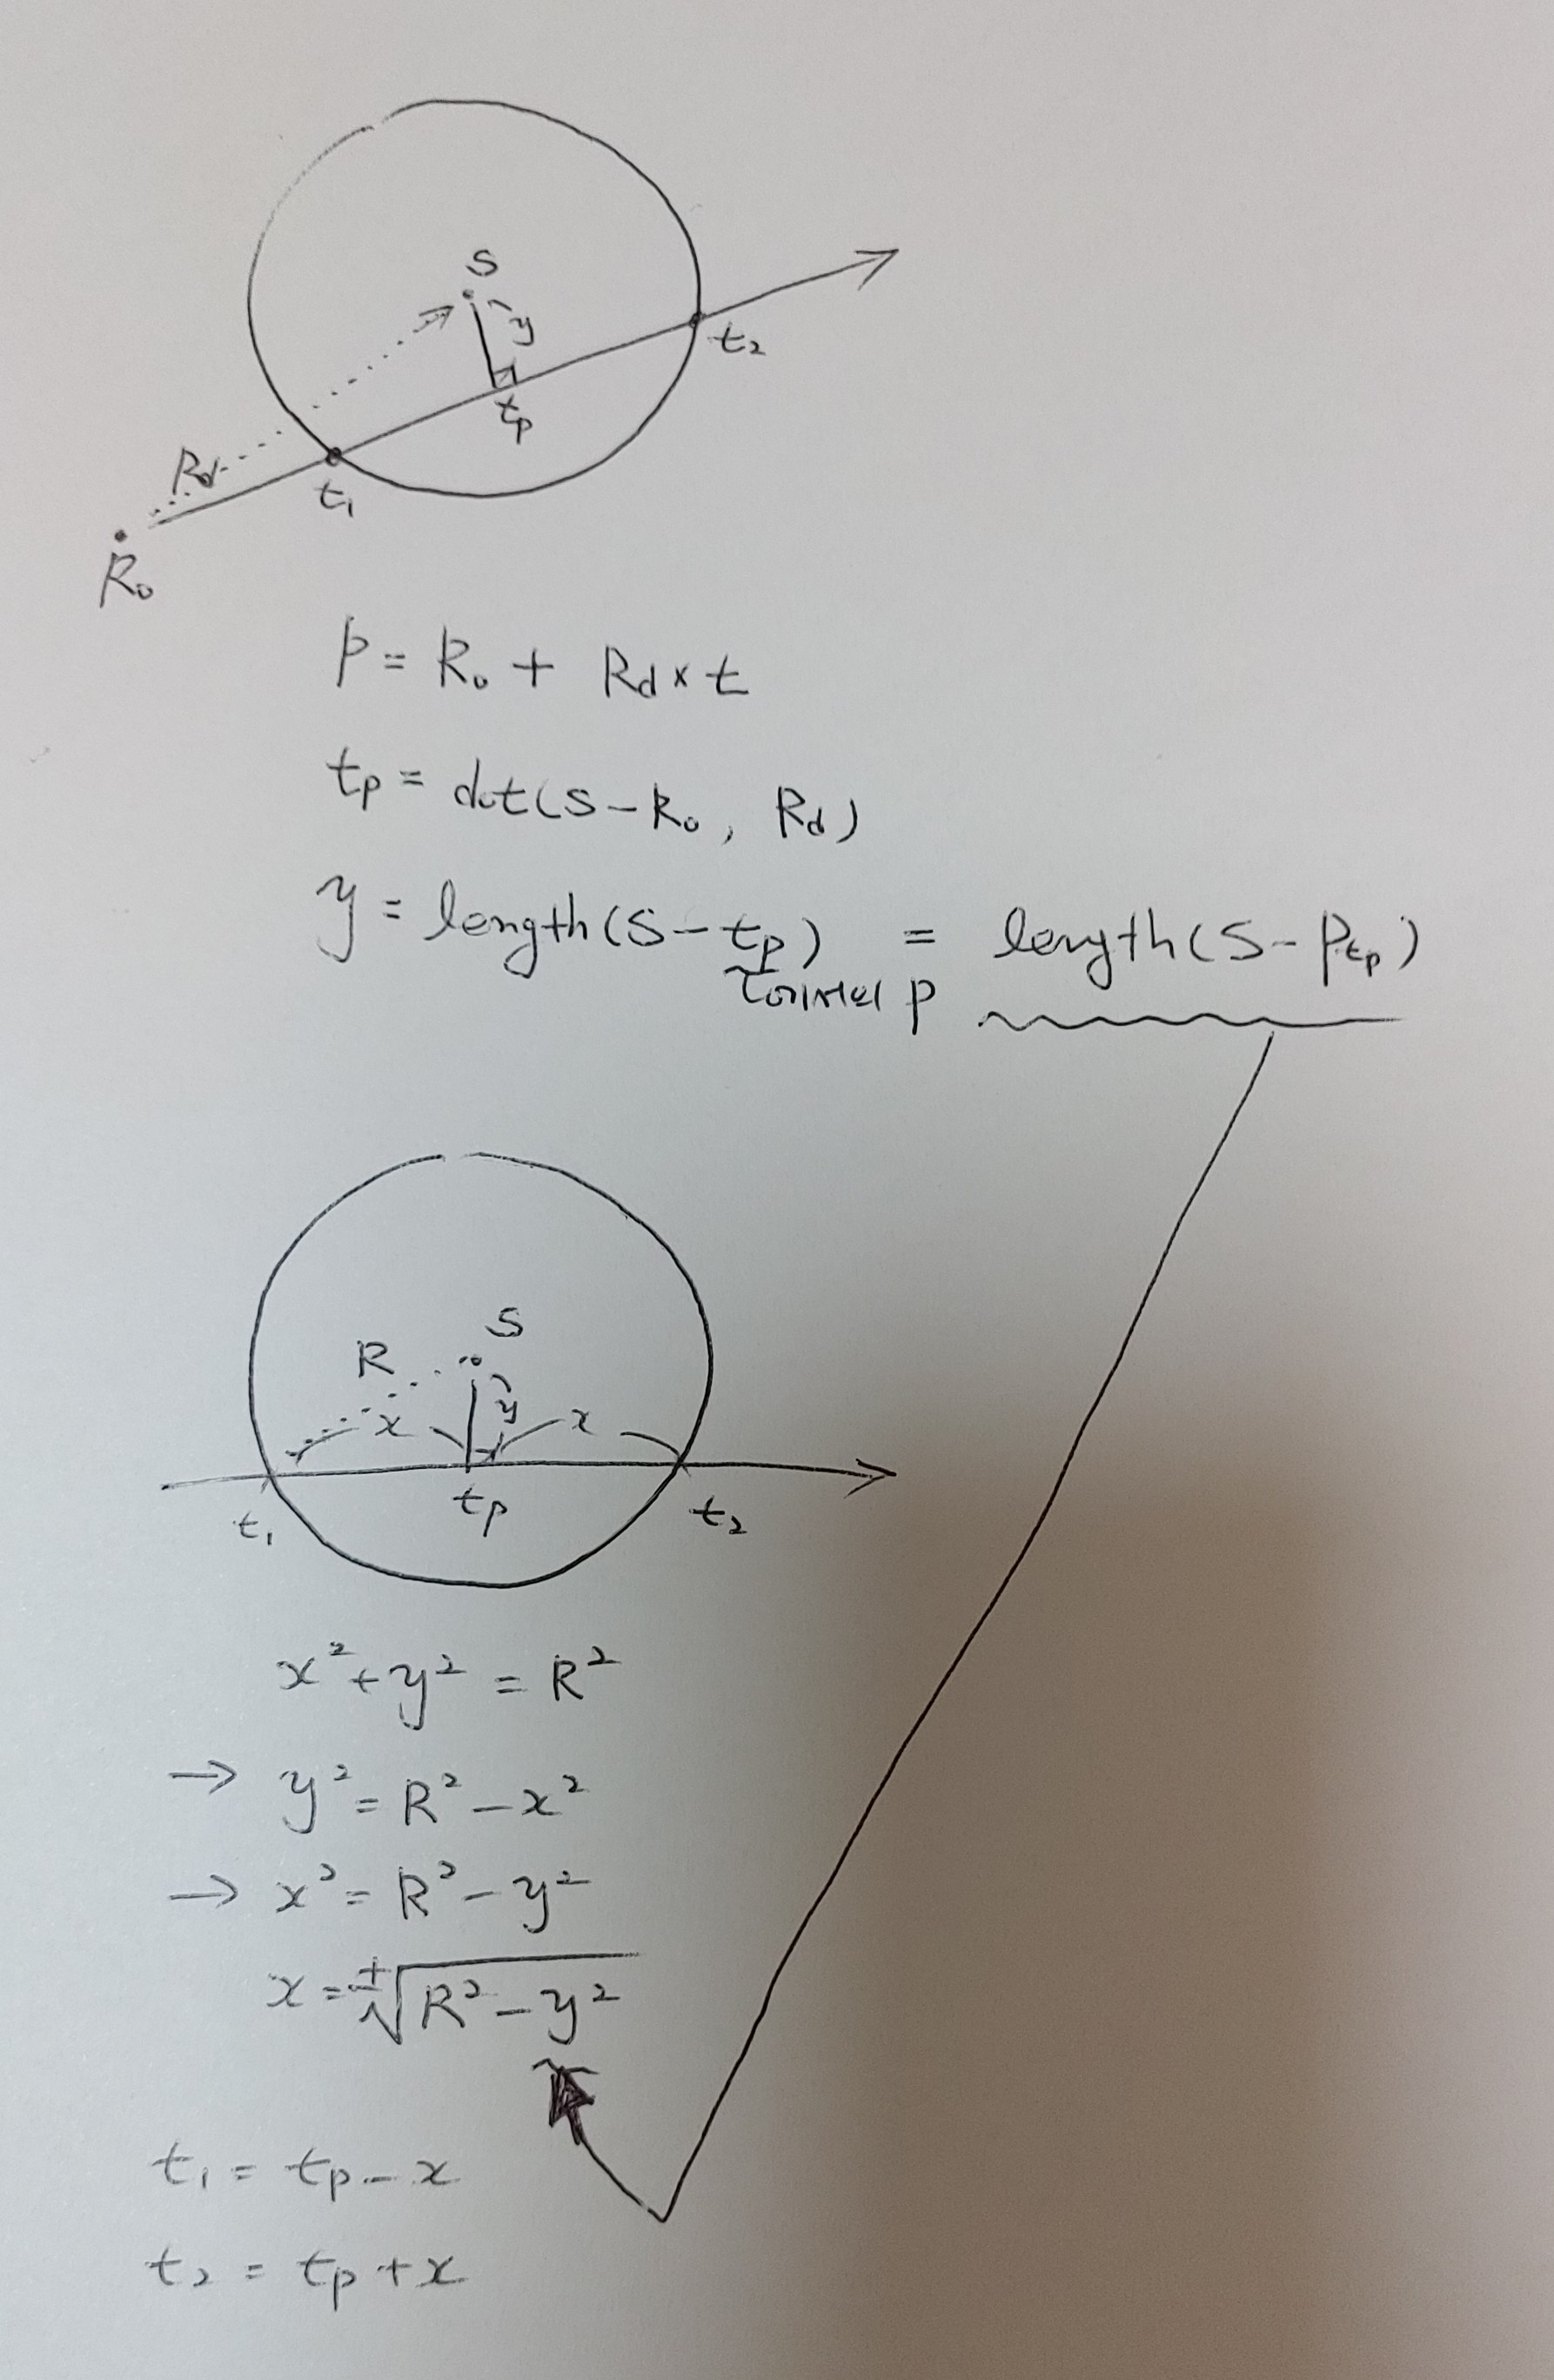 S
y
t₂
tₚ
R_d
t₁
R₀
P = R₀ + R_d × t
tₚ = dot(S - R₀, R_d)
y = length(S - tₚ) = length(S - P_tₚ)
에서의 p
S
R
x
y
x
t₁
tₚ
t₂
x² + y² = R²
→ y² = R² - x²
→ x² = R² - y²
x = ±√(R² - y²)
t₁ = tₚ - x
t₂ = tₚ + x